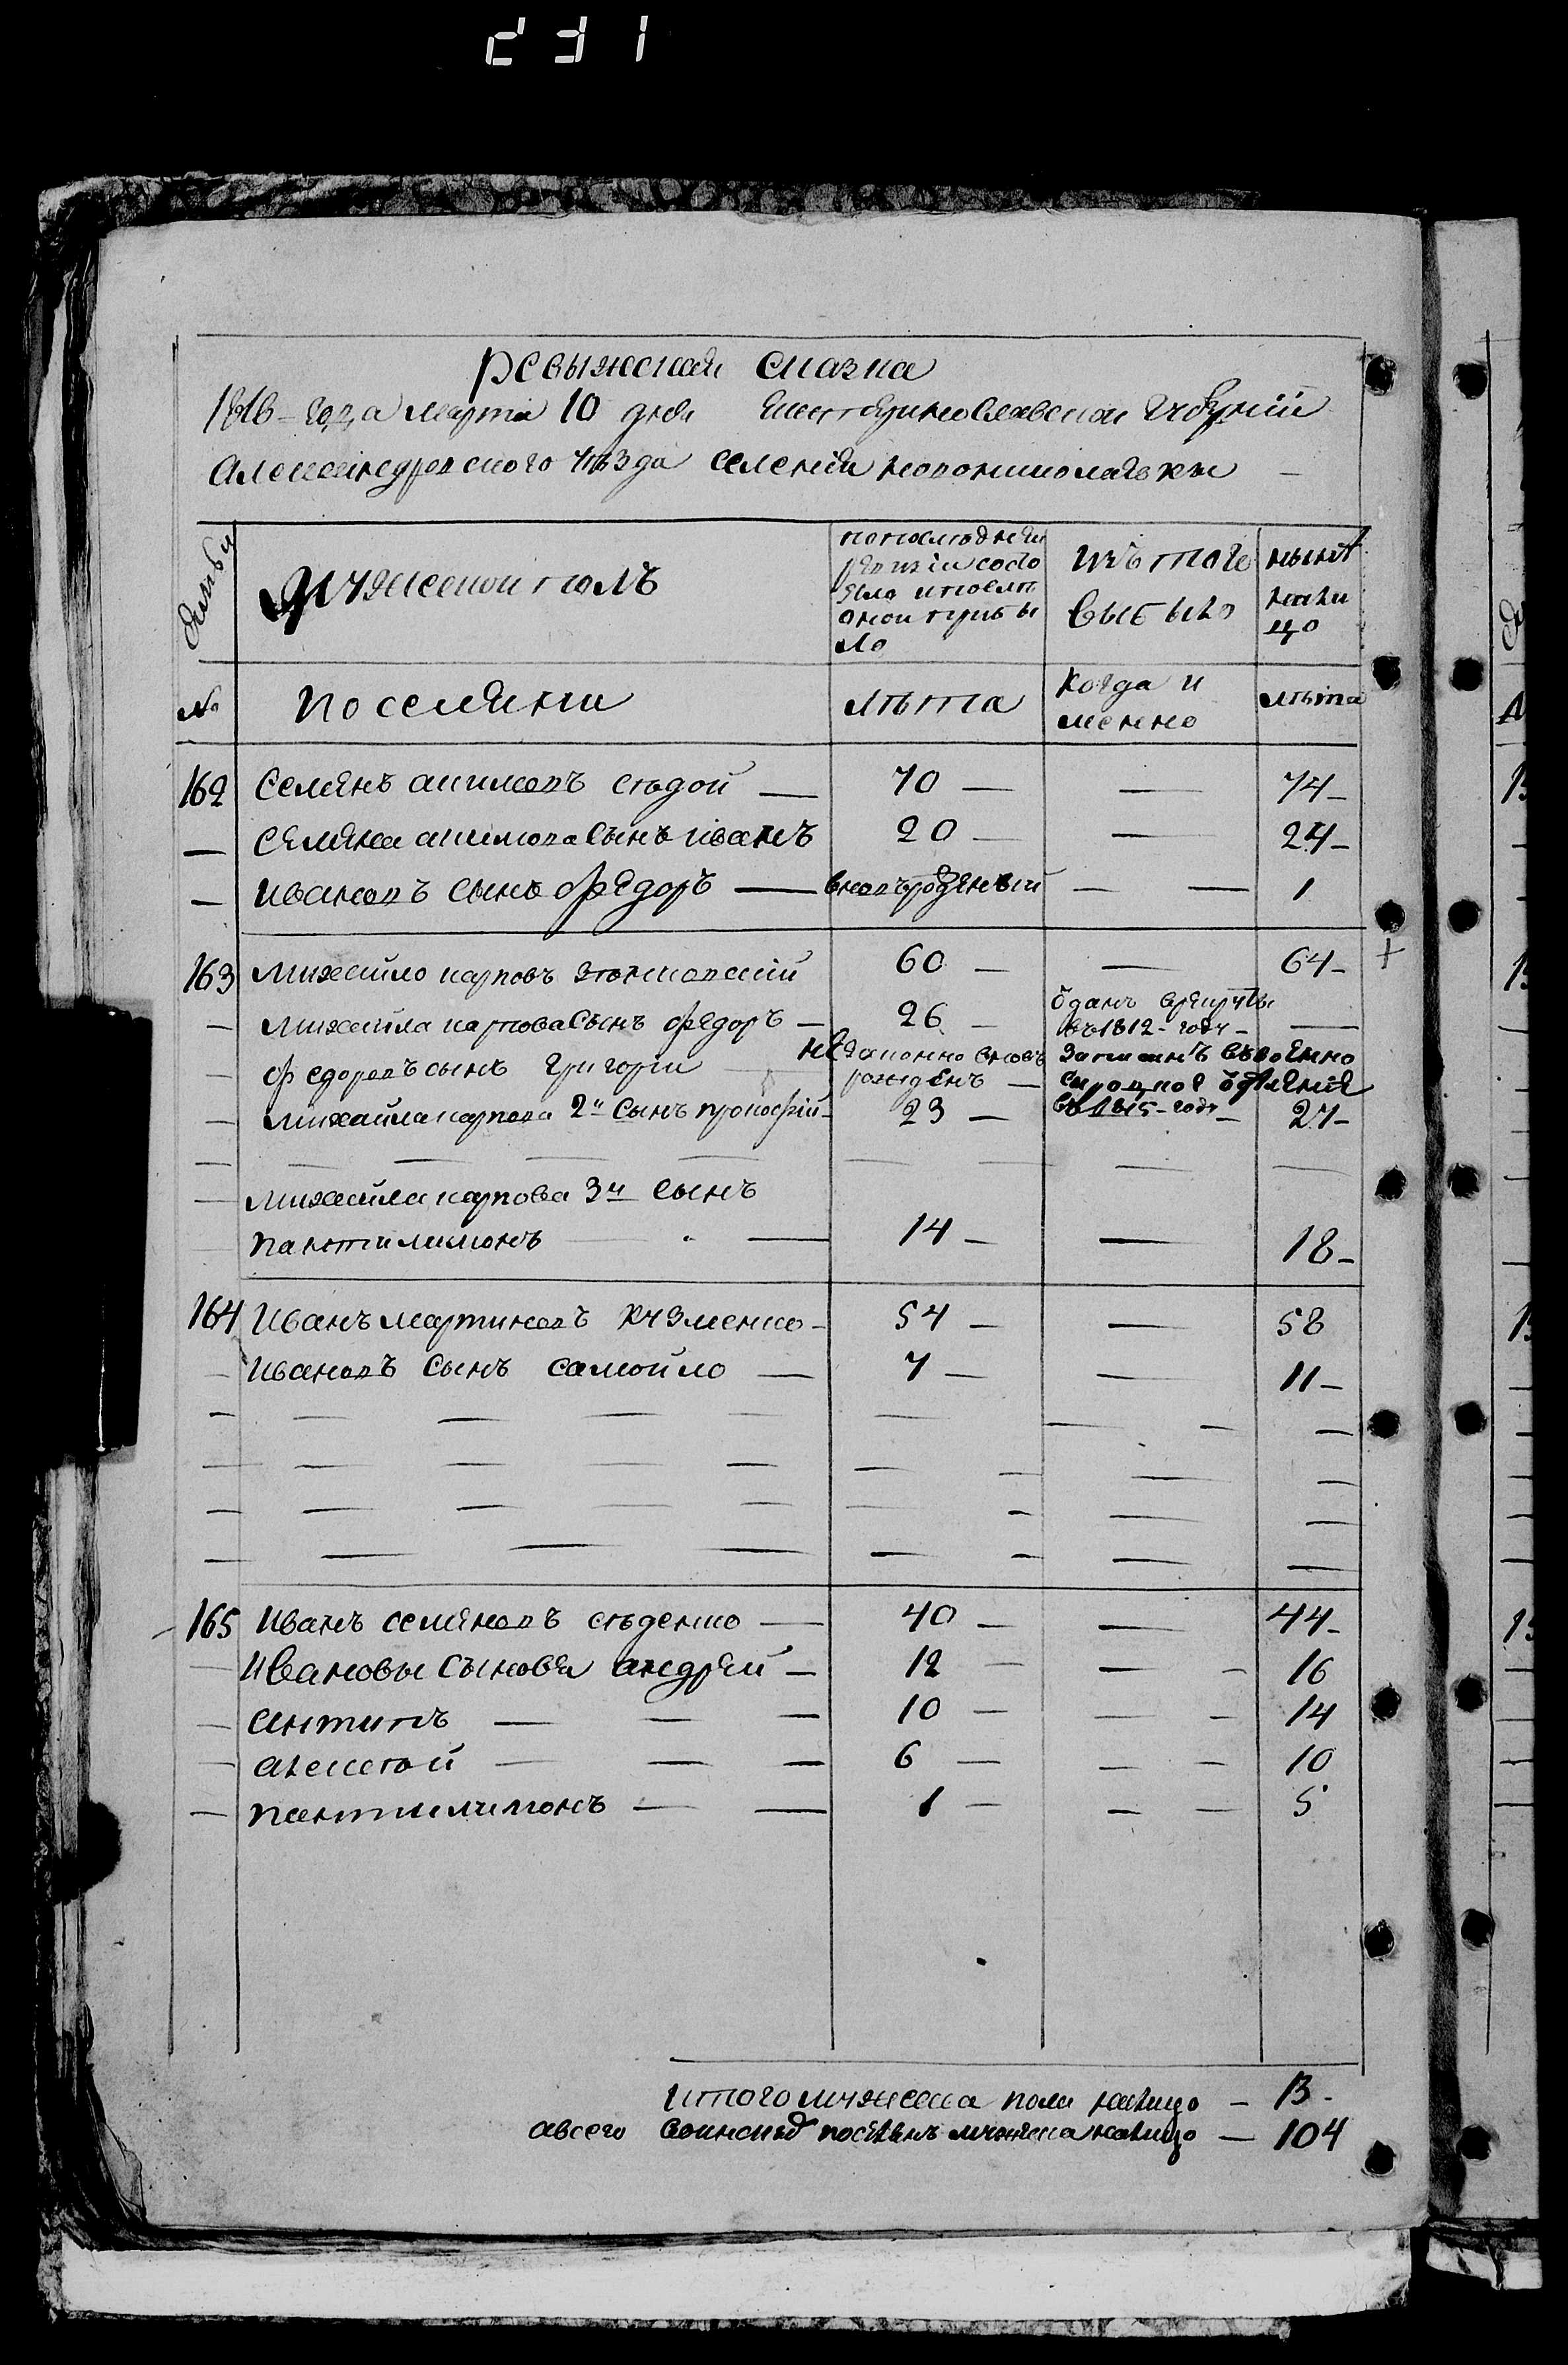 231
ревыжская сказка
1816 года марта 10 дня Екатеринославской губернии
Александровского уезда селения новониколаевки
семьи
мужеской полъ
попоследней
ревизіи состо
яло ипослѣ
оной прибы
ло
изъ того
выбыло
нынѣ
нали
цо
№
поселяни
лѣта
когда и
менно
лѣта
162 Семенъ акимовъ сѣдой — 70 — — 74 —
— семена акимова сынъ иванъ 20 — — 24 —
— ивановъ сынъ федоръ — вновьрожденный — — 1
163 михайло карповъ 60 — — 64 — +
— михайла карпова сынъ федоръ — 26 — ѿданъ врекруты
въ 1812 году — —
— федоровъ сынъ григорий незаконно вновь
рожденъ — записанъ ввоенно
сиротское ѿделение
въ 1815 году —
— михайла карпова 2й сынъ прокофій 23 — 27 —
— михайла карпова 3й сынъ
пантилимонъ — 14 — — 18 —
164 Иванъ мартиновъ кузменко — 54 — — 58
— ивановъ сынъ самойло — 7 — — 11 —
165 иванъ семеновъ сѣденко — 40 — — 44 —
— ивановы сыновья андрей — 12 — — 16
— антипъ — 10 — — 14
— алексей — 6 — — 10
— пантилимонъ — 1 — — 5
итого мужеска пола налицо — 13 —
авсего мужеска налицо — 104